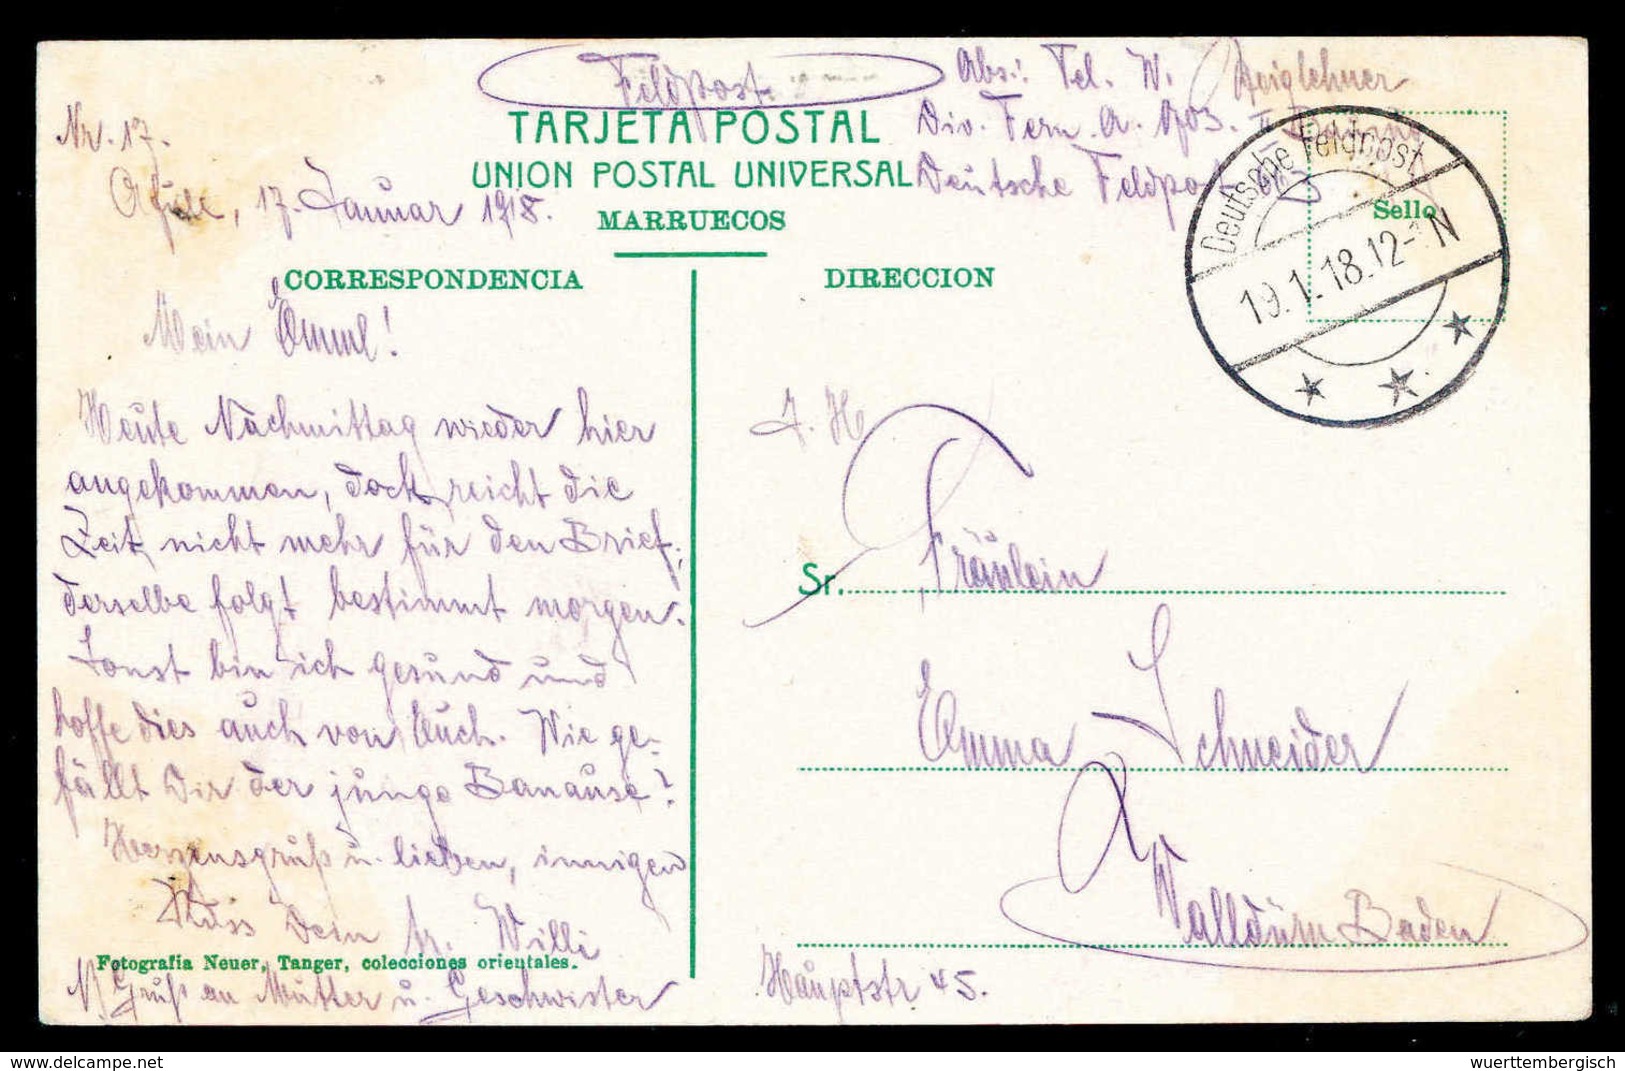 Feldpost.
Abs.: Tel. W.
Div. Fern. A.
Deutsche Feldpost
Nr. 17.
TARJETA POSTAL
UNION POSTAL UNIVERSAL
17. Januar 1918.
MARRUECOS
Deutsche Feldpost
19.1.18.12- N
Sello
CORRESPONDENCIA
DIRECCION
Mein Emml!
Heute Nachmittag wieder hier
angekommen, doch reicht die
Zeit nicht mehr für den Brief;
derselbe folgt bestimmt morgen.
Sonst bin ich gesund und
hoffe dies auch von Euch. Wie ge-
fällt Dir der junge Banause?
Herzensgruß u. lieben, innigen
Kuss Dein tr. Willi
Fotografia Neuer, Tanger, colecciones orientales.
Gruß an Mutter u. Geschwister
Sr.
Fräulein
Emma Schneider
Walldürn Baden
Hauptstr 45.
wuerttembergisch